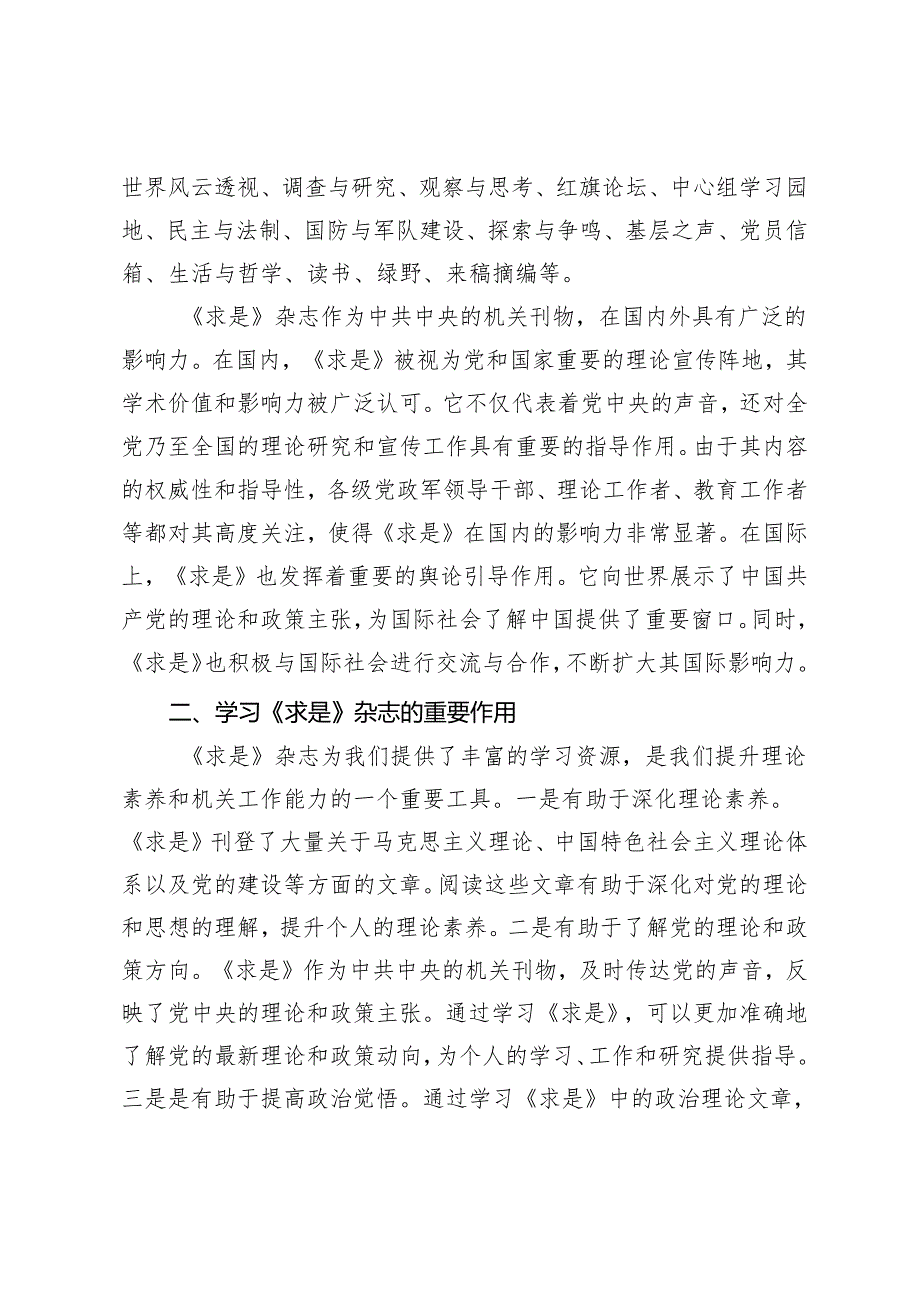 世界风云透视、调查与研究、观察与思考、红旗论坛、中心组学习园
地、民主与法制、国防与军队建设、探索与争鸣、基层之声、党员信
箱、生活与哲学、读书、绿野、来稿摘编等。
《求是》杂志作为中共中央的机关刊物，在国内外具有广泛的
影响力。在国内，《求是》被视为党和国家重要的理论宣传阵地，其
学术价值和影响力被广泛认可。它不仅代表着党中央的声音，还对全
党乃至全国的理论研究和宣传工作具有重要的指导作用。由于其内容
的权威性和指导性，各级党政军领导干部、理论工作者、教育工作者
等都对其高度关注，使得《求是》在国内的影响力非常显著。在国际
上，《求是》也发挥着重要的舆论引导作用。它向世界展示了中国共
产党的理论和政策主张，为国际社会了解中国提供了重要窗口。同时，
《求是》也积极与国际社会进行交流与合作，不断扩大其国际影响力。
二、学习《求是》杂志的重要作用
《求是》杂志为我们提供了丰富的学习资源，是我们提升理论
素养和机关工作能力的一个重要工具。一是有助于深化理论素养。
《求是》刊登了大量关于马克思主义理论、中国特色社会主义理论体
系以及党的建设等方面的文章。阅读这些文章有助于深化对党的理论
和思想的理解，提升个人的理论素养。二是有助于了解党的理论和政
策方向。《求是》作为中共中央的机关刊物，及时传达党的声音，反
映了党中央的理论和政策主张。通过学习《求是》，可以更加准确地
了解党的最新理论和政策动向，为个人的学习、工作和研究提供指导。
三是是有助于提高政治觉悟。通过学习《求是》中的政治理论文章，